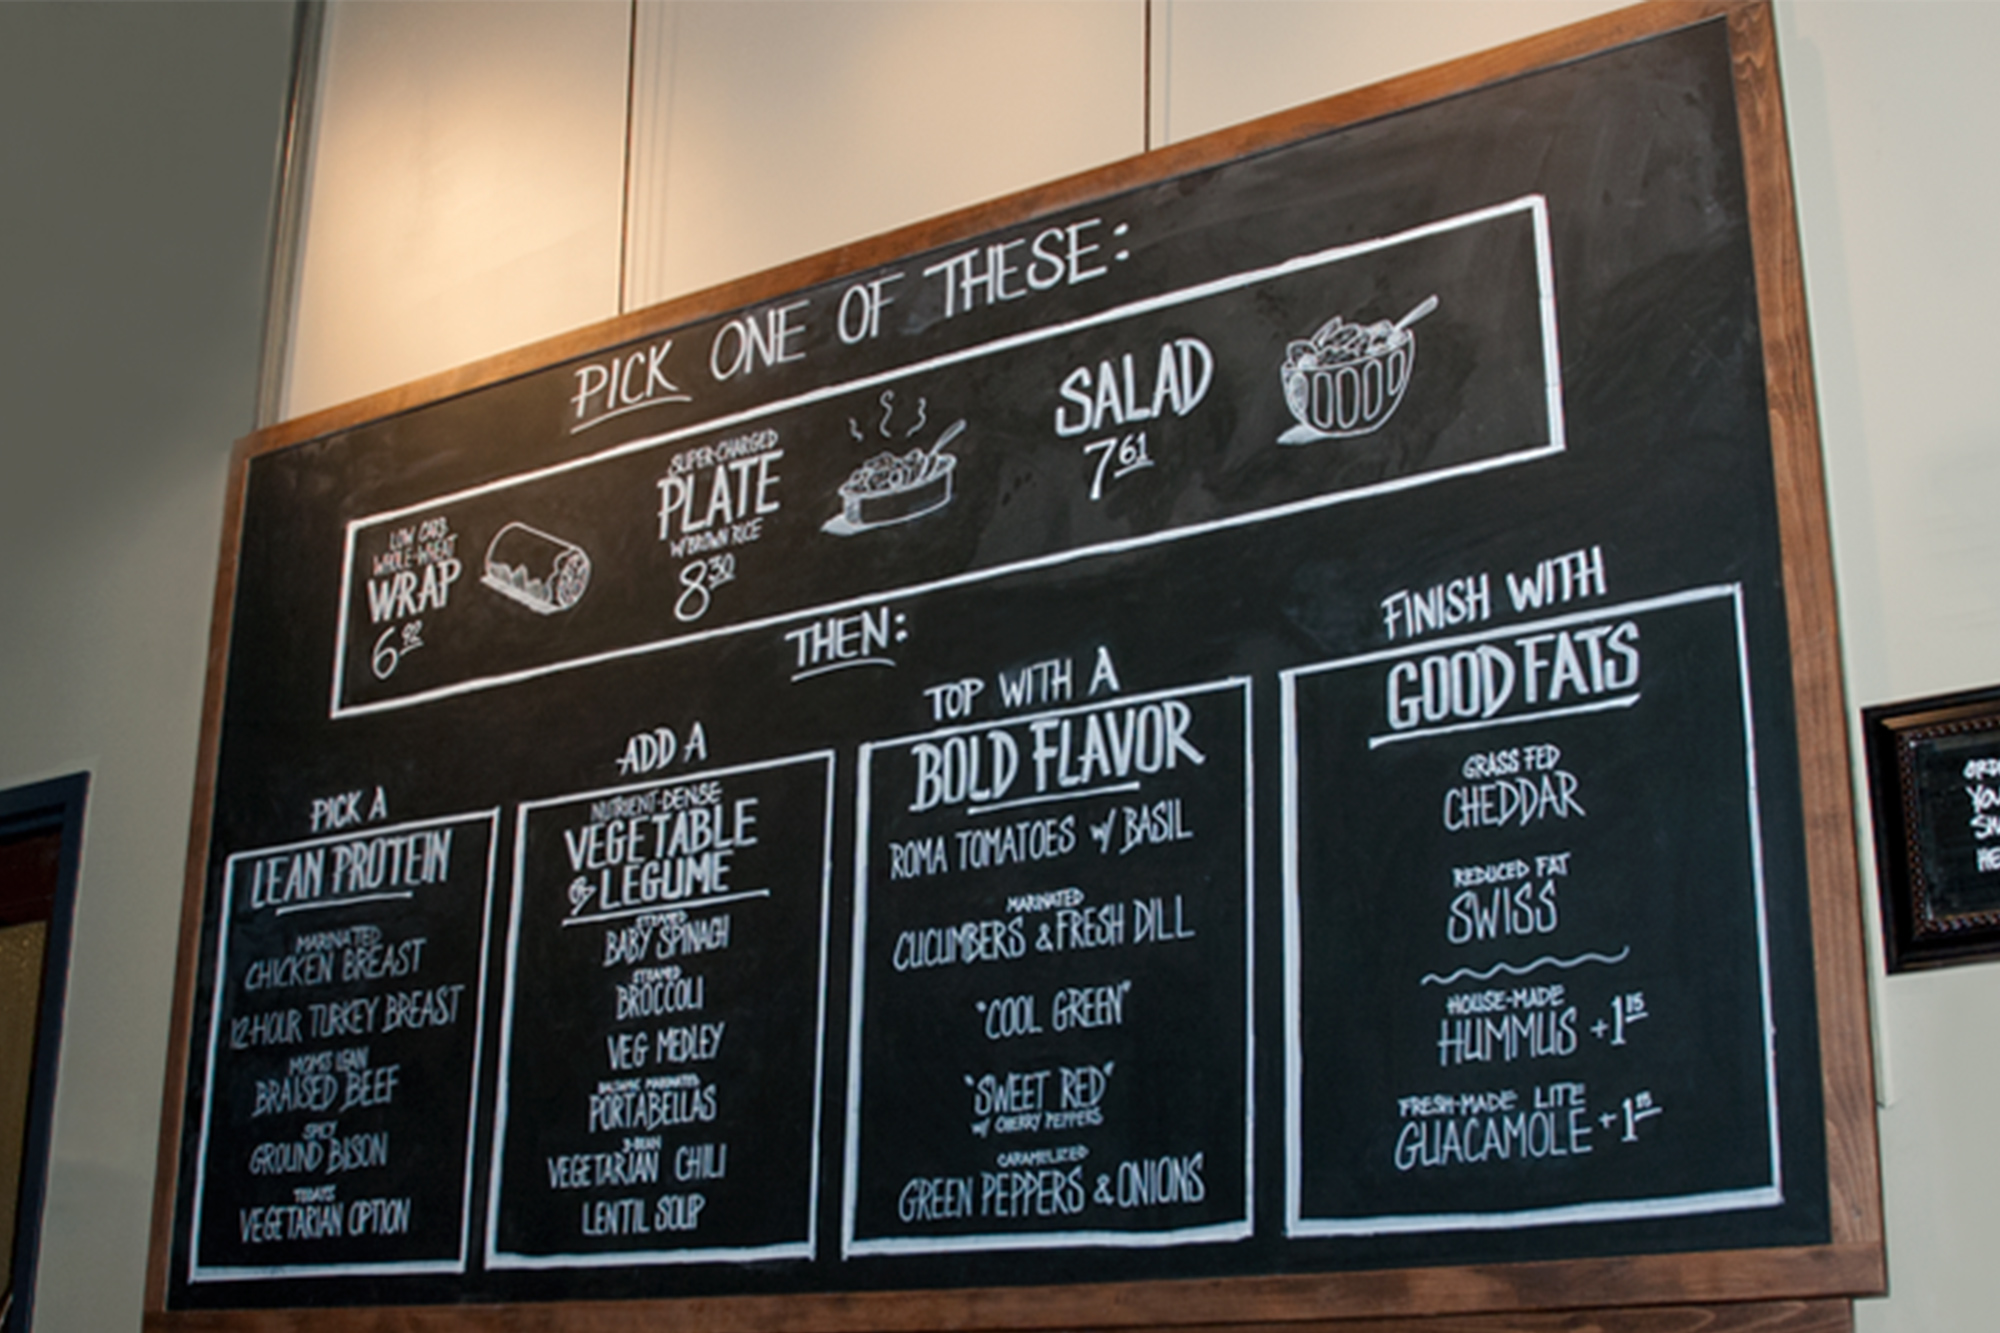 PICK ONE OF THESE:
LOW CARB
WHOLE-WHEAT
WRAP
6 92
SUPER-CHARGED
PLATE
W/ BROWN RICE
8 30
SALAD
7 61
THEN:
PICK A
LEAN PROTEIN
MARINATED
CHICKEN BREAST
12-HOUR TURKEY BREAST
MOM'S LEAN
BRAISED BEEF
SPICY
GROUND BISON
TODAY'S
VEGETARIAN OPTION
ADD A
NUTRIENT-DENSE
VEGETABLE
or LEGUME
STEAMED
BABY SPINACH
STEAMED
BROCCOLI
VEG MEDLEY
BALSAMIC MARINATED
PORTABELLAS
3-BEAN
VEGETARIAN CHILI
LENTIL SOUP
TOP WITH A
BOLD FLAVOR
ROMA TOMATOES W/ BASIL
MARINATED
CUCUMBERS & FRESH DILL
"COOL GREEN"
"SWEET RED"
W/ CHERRY PEPPERS
CARAMELIZED
GREEN PEPPERS & ONIONS
FINISH WITH
GOOD FATS
GRASS FED
CHEDDAR
REDUCED FAT
SWISS
HOUSE-MADE
HUMMUS +1 15
FRESH-MADE LITE
GUACAMOLE +1 15
YOU